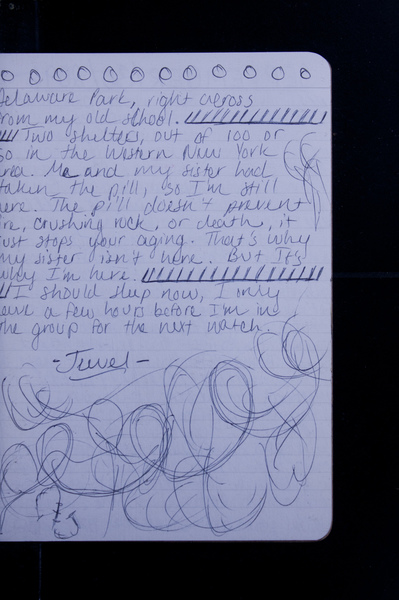 Delaware Park, right across
from my old school.
Two shelters, out of 100 or
so in the Western New York
area. Me and my sister had
taken the pill, so I'm still
here. The pill doesn't prevent
fire, crushing rock, or death, it
just stops your aging. That's why
my sister isn't here. But It's
why I'm here.
I should sleep now, I only
have a few hours before I'm in
the group for the next watch.
-Juvel-